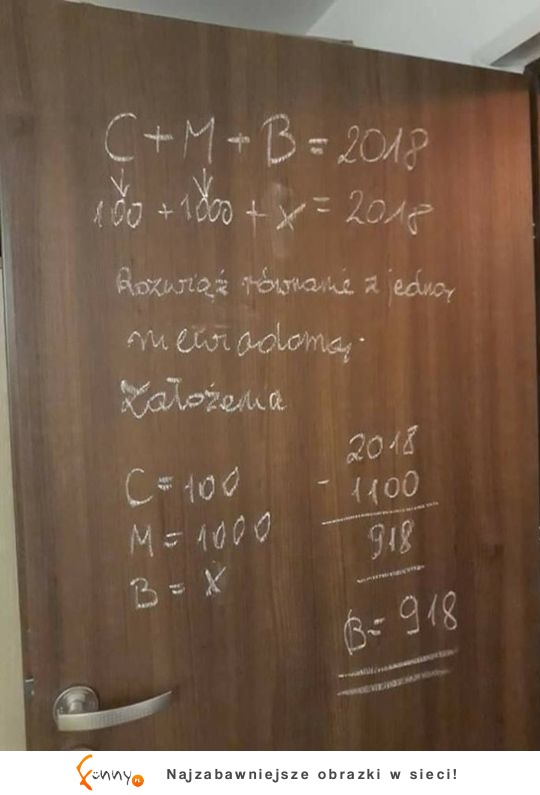 C + M + B = 2018
100 + 1000 + X = 2018
Rozwiąż równanie z jedną
niewiadomą.
Założenia
C = 100
M = 1000
B = X
2018
- 1100
918
B = 918
Funny.PL Najzabawniejsze obrazki w sieci!